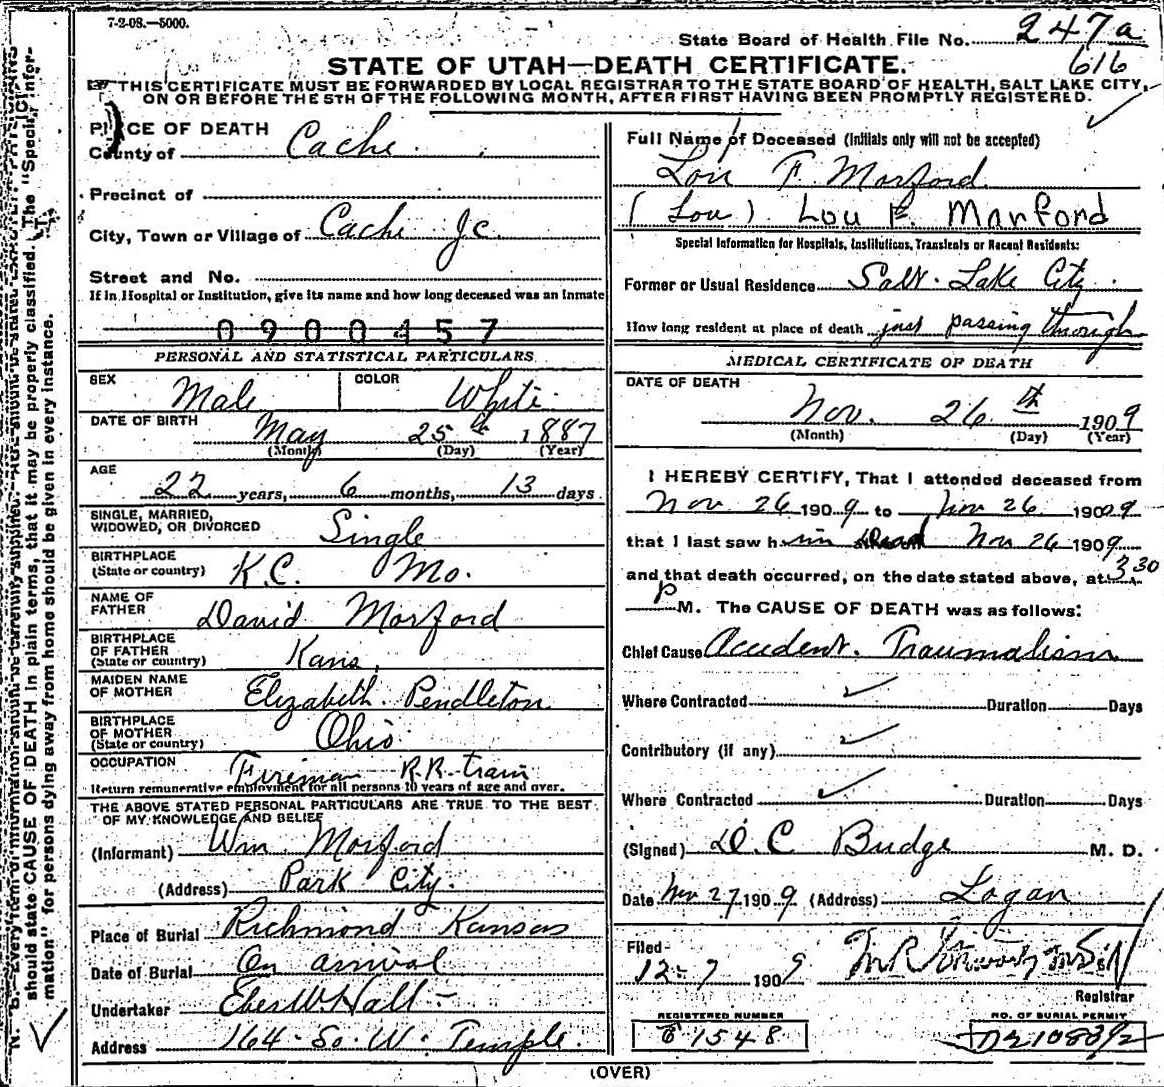 7-2-08.—5000.
State Board of Health File No. 247a
616
STATE OF UTAH—DEATH CERTIFICATE.
THIS CERTIFICATE MUST BE FORWARDED BY LOCAL REGISTRAR TO THE STATE BOARD OF HEALTH, SALT LAKE CITY,
ON OR BEFORE THE 5TH OF THE FOLLOWING MONTH, AFTER FIRST HAVING BEEN PROMPTLY REGISTERED.
PLACE OF DEATH
County of Cache
Precinct of
City, Town or Village of Cache Jc.
Street and No.
If in Hospital or Institution, give its name and how long deceased was an Inmate
0900457
PERSONAL AND STATISTICAL PARTICULARS
SEX Male COLOR White
DATE OF BIRTH May 25th 1887
(Month) (Day) (Year)
AGE
22 years, 6 months, 13 days
SINGLE, MARRIED,
WIDOWED, OR DIVORCED Single
BIRTHPLACE
(State or country) K.C. Mo.
NAME OF
FATHER David Morford
BIRTHPLACE
OF FATHER
(State or country) Kans.
MAIDEN NAME
OF MOTHER Elizabeth Pendleton
BIRTHPLACE
OF MOTHER
(State or country) Ohio
OCCUPATION Fireman R.R. train
Return remunerative employment for all persons 10 years of age and over.
THE ABOVE STATED PERSONAL PARTICULARS ARE TRUE TO THE BEST
OF MY KNOWLEDGE AND BELIEF
(Informant) Wm. Morford
(Address) Park City.
Place of Burial Richmond Kansas
Date of Burial On arrival
Undertaker Eber W. Hall
Address 164 So. W. Temple.
Full Name of Deceased (Initials only will not be accepted)
Lou F. Morford
(Lou) Lou F. Marford
Special Information for Hospitals, Institutions, Transients or Recent Residents:
Former or Usual Residence Salt Lake City
How long resident at place of death just passing through
MEDICAL CERTIFICATE OF DEATH
DATE OF DEATH
Nov. 26th 1909
(Month) (Day) (Year)
I HEREBY CERTIFY, That I attended deceased from
Nov 26 1909 to Nov 26 1909
that I last saw him Dead Nov 26 1909
and that death occurred, on the date stated above, at 3 30
P M. The CAUSE OF DEATH was as follows:
Chief Cause Accident. Traumatism
Where Contracted Duration Days
Contributory (if any)
Where Contracted Duration Days
(Signed) D. C Budge M. D.
Date Nov 27 1909 (Address) Logan
Filed
12-7 1909
Registrar
REGISTERED NUMBER NO. OF BURIAL PERMIT
1548
(OVER)
should state CAUSE OF DEATH in plain terms, that it may be properly classified. The "Special Infor-
mation" for persons dying away from home should be given in every instance.